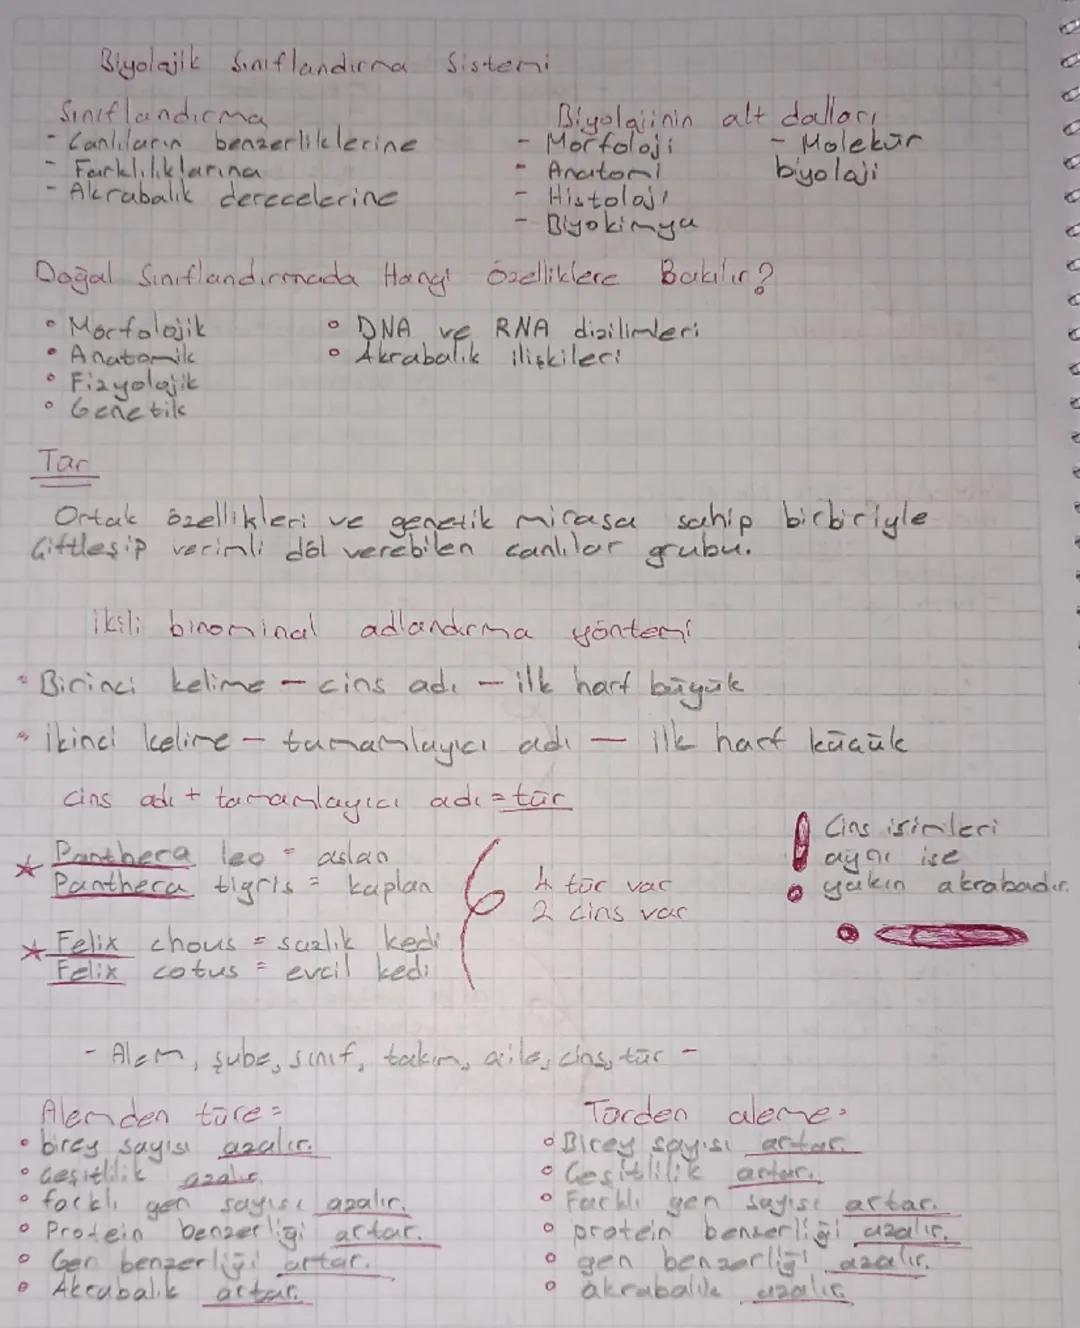 Biyolojik Sınıflandırma Sistemi
Sınıflandırma
- Canlıların benzerliklerine
- Farklılıklarına
- Akrabalık derecelerine
Biyolojinin alt dalları
- Morfoloji
- Anatomi
- Histoloji
- Biyokimya
- Molekür
biyoloji
Doğal Sınıflandırmada Hangi Özelliklere Bakılır?
• Morfolojik
• Anatomik
• Fizyolojik
• Genetik
• DNA ve RNA dizilimleri
• Akrabalık ilişkileri
Tür
Ortak özellikleri ve genetik mirasa sahip birbiriyle
Çiftleşip verimli döl verebilen canlılar grubu.
ikili binominal adlandırma yöntemi
• Birinci kelime - cins adı - ilk harf büyük
• ikinci kelime - tamamlayıcı adı - ilk harf küçük
cins adı + tamamlayıcı adı = tür
★ Panthera leo = aslan
Panthera tigris = kaplan
★ Felix chous = sazlık kedi
Felix cotus = evcil kedi
4 tür var
2 cins var
Cins isimleri
aynı ise
yakın akrabadır.
- Alem, şube, sınıf, takım, aile, cins, tür -
Alemden türe =
• birey sayısı azalır.
• Çeşitlilik azalır.
• farklı gen sayısı azalır.
• Protein benzerliği artar.
• Gen benzerliği artar.
• Akrabalık artar.
Türden aleme =
• Birey sayısı artar.
• Çeşitlilik artar.
• Farklı gen sayısı artar.
• protein benzerliği azalır.
• gen benzerliği azalır.
• akrabalık azalır.